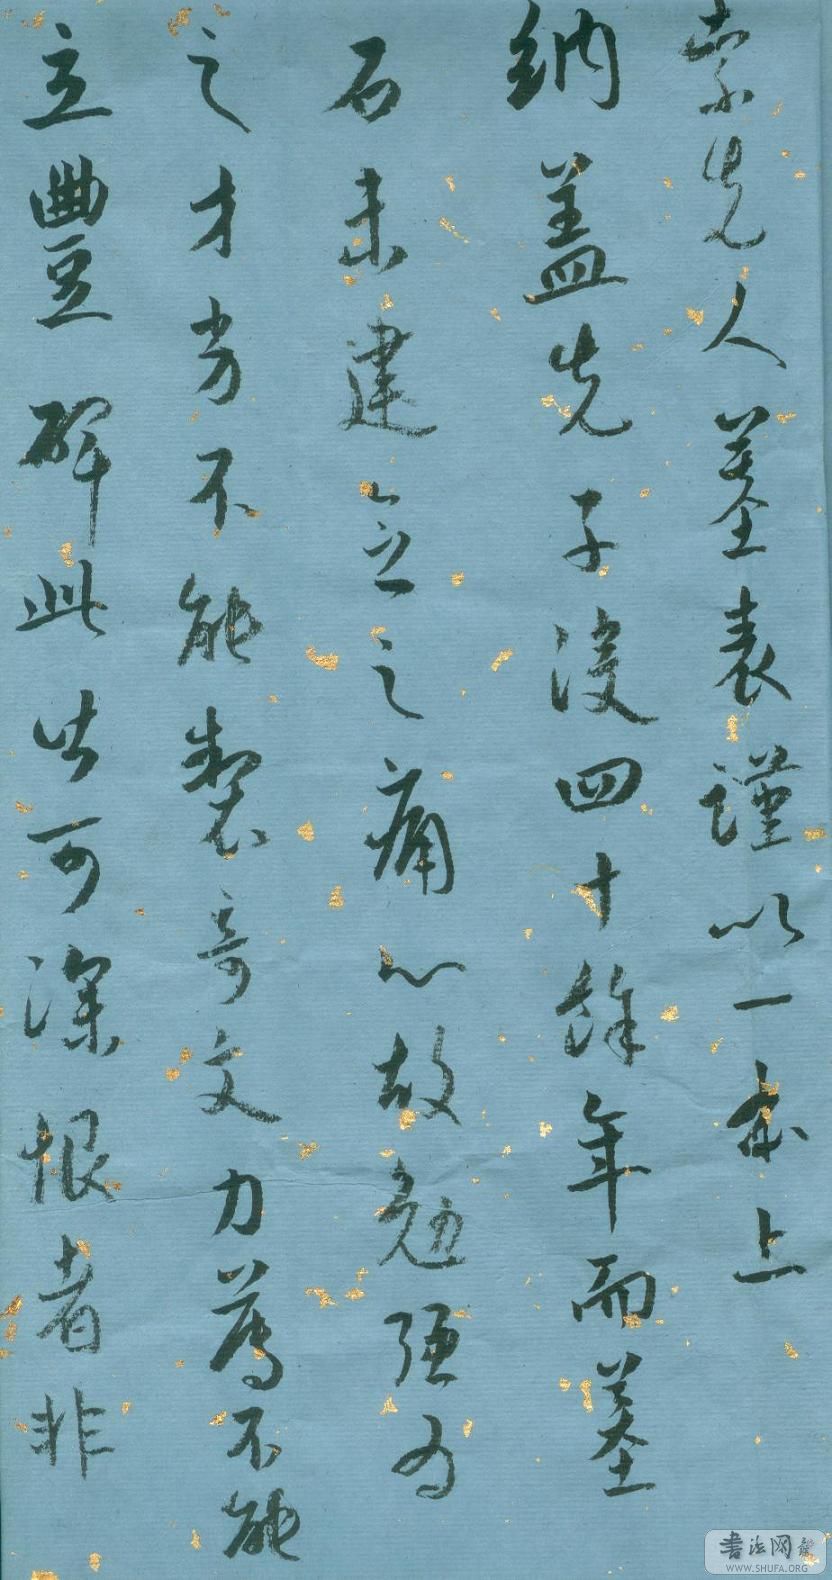 索先人墓表謹以一本上
納盖先子没四十餘年而墓
石未建立之痛心故勉强为
之才劣不能製奇文力薄不能
立豐碑此皆可深恨者非
書法网
WWW.SHUFA.ORG